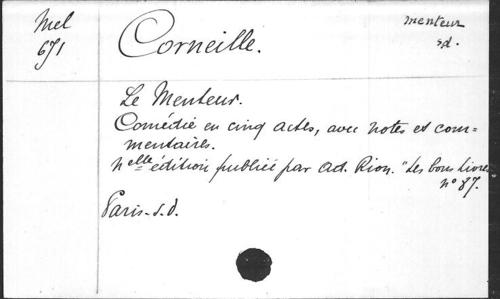 Mel
671
Corneille.
menteur
sd.
Le Menteur.
Comédie en cinq actes, avec notes et com-
mentaires.
Nelle édition publiée par Ad. Rion. "Les bons Livres
n° 87.
Paris. s.d.